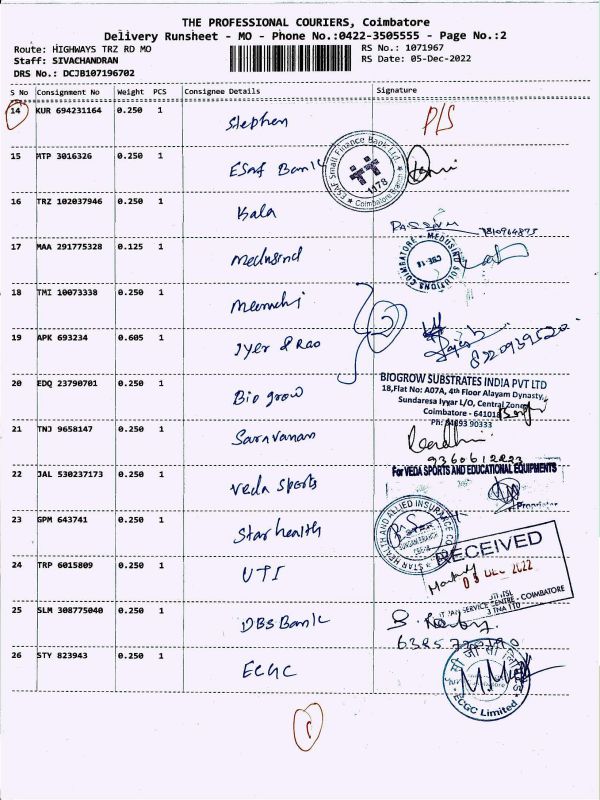 THE PROFESSIONAL COURIERS, Coimbatore
Delivery Runsheet - MO - Phone No.:0422-3505555 - Page No.:2
Route: HIGHWAYS TRZ RD MO
RS No.: 1071967
Staff: SIVACHANDRAN
RS Date: 05-Dec-2022
DRS No.: DCJB107196702
S No Consignment No Weight PCS Consignee Details Signature
14 KUR 694231164 0.250 1 Stephen P/S
15 MTP 3016326 0.250 1 ESAF Bank
ESAF Small Finance Bank Ltd. 1178 Coimbatore
16 TRZ 102037946 0.250 1 Kala
17 MAA 291775328 0.125 1 Medusind
MEDUSIND SOLUTIONS COIMBATORE CBE-18
18 TMI 10073338 0.250 1 Meenachi
19 APK 693234 0.605 1 Iyer & Rao 2
8220939520
20 EDQ 23790701 0.250 1 Bio grow
BIOGROW SUBSTRATES INDIA PVT LTD
18,Flat No: A07A, 4th Floor Alayam Dynasty,
Sundaresa Iyyar L/O, Central Zone
Coimbatore - 641018
90333
21 TNJ 9658147 0.250 1 Saravanan
22 JAL 530237173 0.250 1 Veda Sports
For VEDA SPORTS AND EDUCATIONAL EQUIPMENTS
Proprietor
23 GPM 643741 0.250 1 Star health
STAR HEALTH AND ALLIED INSURANCE CO
24 TRP 6015809 0.250 1 UTI
RECEIVED
DEC 2022
SERVICE CENTRE - COIMBATORE
25 SLM 308775040 0.250 1 DBS Bank
26 STY 823943 0.250 1 ECGC
ECGC Limited